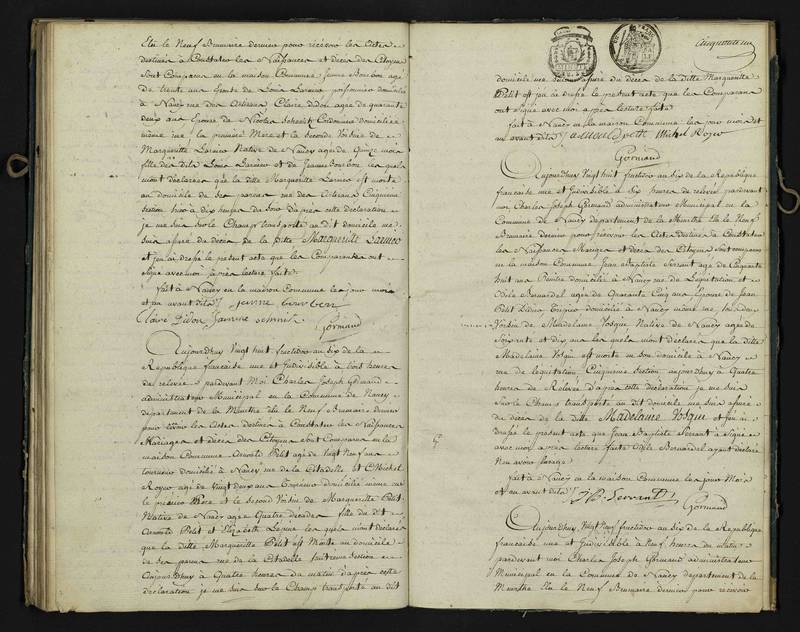 Elu le Neuf Brumaire dernier pour recevoir les Actes
destinés à Constater les Naissances et décès des Citoyens
Sont Comparus en la maison Commune Jeanne Bourbon age
de trente ans Epouse de Louis Larnier domicilié
à Nancy rue des Artisans Claire Didon agée de quarante
deux ans Epouse de Nicolas Cordonnier domiciliée
même rue la première Mere et la Seconde Voisine de
Marguerite Larnier Native de Nancy agée de Quinze mois
fille dudit Louis Larnier et de Jeanne Bourbon les quels
mont declarées que la ditte Marguerite Larnier est morte
au domicile de ses pere rue des Artisans Cinquieme
Section hier à dix heures du Soir d'après cette déclaration
je me suis sur le Champ transporté au dit domicile me
Suis assuré du décès de la ditte Marguerite Larnier
et jen ai dressé le présent acte que les Comparantes ont
Signé avec moi après lecture faite
fait à Nancy en la maison Commune les jour mois
et an avant dits
Claire Didon
Gormand
Aujourdhuy Vingt huit fructidor an six de la
Republique française une et Indivisible à trois heures
de relevée pardevant Moi Charles Joseph Gormand
administrateur Municipal en la Commune de Nancy
departement de la Meurthe élu le Neuf Brumaire dernier
pour recevoir les Actes destinés à Constater les Naissances
Mariages et décès des Citoyens sont Comparus en la
maison Commune Arnould Petit agé de Vingt Neuf ans
tourneur domicilié à Nancy rue de la Citadelle et Michel
Royer agé de vingt deux ans domicilié même rue
le premier Pere et le second Voisin de Marguerite Petit
Native de Nancy agée Quatre decades fille du dit
Arnould Petit et Elizabeth les quels mont déclaré
que la ditte Marguerite Petit est Morte au domicile
de Ses pere rue de la Citadelle huitieme Section
Aujourdhuy à Quatre heures du matin d'après cette
declaration je me suis sur le Champ transporté au dit
domicile me suis assuré du décès de la ditte Marguerite
Petit et jen ai dressé le present acte que les Comparans
ont Signé avec moi après lecture faite
fait à Nancy en la maison Commune les jour mois et
an avant dits Michel Royer
Gormand
Aujourdhuy Vingt huit fructidor an six de la Republique
française une et Indivisible à Six heures de relevée pardevant
moi Charles Joseph Gormand administrateur Municipal en la
Commune de Nancy departement de la Meurthe Elu le Neuf
Brumaire dernier pour recevoir les Actes Destinés à Constater
les Naissances Mariages et décès des Citoyens sont comparus
en la maison Commune Jean Baptiste Servant agé de Cinquante
huit ans Peintre domicilié à Nancy rue de Legislation et
Odile Bernardel agée de Quarante Cinq ans Epouse de Jean
Petit Didier domicilié à Nancy même rue les deux
Voisins de Madelaine Vosqui Native de Nancy agée de
Soixante et dix ans les quels mont déclaré que la ditte
Madelaine Vosqui est morte en Son domicile à Nancy
rue de legislation Cinquieme Section aujourdhuy à Quatre
heures de Relevée d'après cette déclaration je me suis
Sur le Champ transporté au dit domicile me suis assuré
du décès de la ditte Madelaine Vosqui et jen ai
dressé le present acte que Jean Baptiste Servant a Signé
avec moi après lecture faite Odile Bernardel ayant déclaré
Ne en avoir l'usage
fait à Nancy en la maison Commune les jour Mois
et an avant dits J B Servant
Gormand
Aujourdhuy Vingt Neuf fructidor an six de la Republique
française une et Indivisible à Neuf heures du Matin
pardevant moi Charles Joseph Gormand administrateur
Municipal en la Commune de Nancy departement de la
Meurthe Elu le Neuf Brumaire dernier pour recevoir